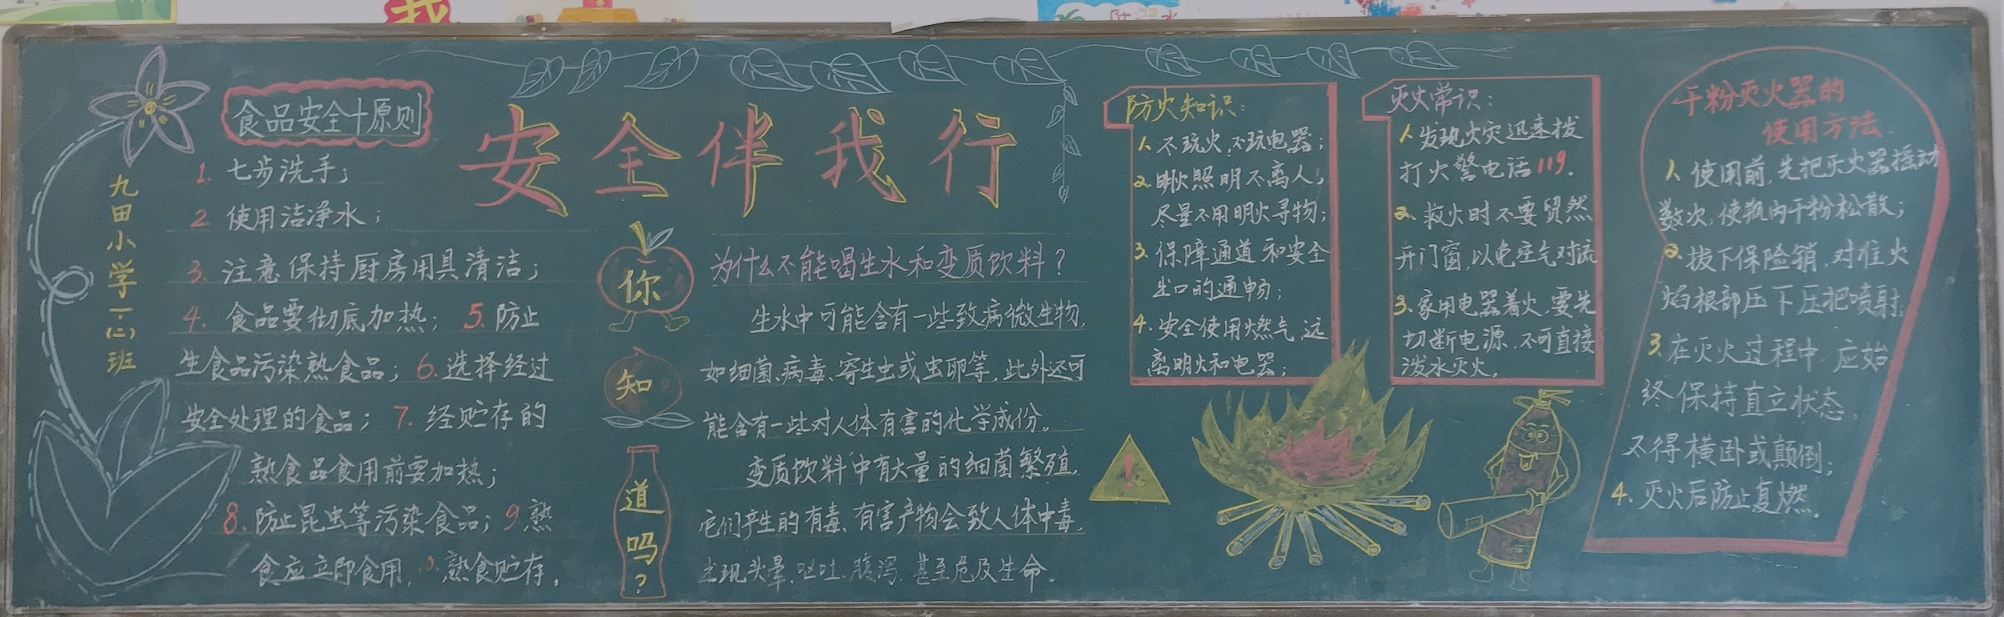 九田小学一(二)班
食品安全十原则
1. 七步洗手；
2. 使用洁净水；
3. 注意保持厨房用具清洁；
4. 食品要彻底加热；5. 防止
生食品污染熟食品；6. 选择经过
安全处理的食品；7. 经贮存的
熟食品食用前要加热；
8. 防止昆虫等污染食品；9. 熟
食应立即食用. 熟食贮存.
安全伴我行
你
知
道
吗?
为什么不能喝生水和变质饮料？
生水中可能含有一些致病微生物,
如细菌、病毒、寄生虫或虫卵等,此外还可
能含有一些对人体有害的化学成份。
变质饮料中有大量的细菌繁殖,
它们产生的有毒、有害产物会致人体中毒,
出现头晕、呕吐、腹泻、甚至危及生命.
防火知识:
1. 不玩火,不玩电器;
2. 明火照明不离人,
尽量不用明火寻物;
3. 保障通道和安全
出口的通畅;
4. 安全使用燃气,远
离明火和电器;
灭火常识:
1. 发现火灾迅速拨
打火警电话119.
2. 救火时不要贸然
开门窗,以免空气对流
3. 家用电器着火,要先
切断电源,不可直接
泼水灭火.
!
干粉灭火器的
使用方法.
1. 使用前,先把灭火器摇动
数次,使瓶内干粉松散;
2. 拔下保险销,对准火
焰根部压下压把喷射.
3. 在灭火过程中,应始
终保持直立状态,
不得横卧或颠倒;
4. 灭火后防止复燃.